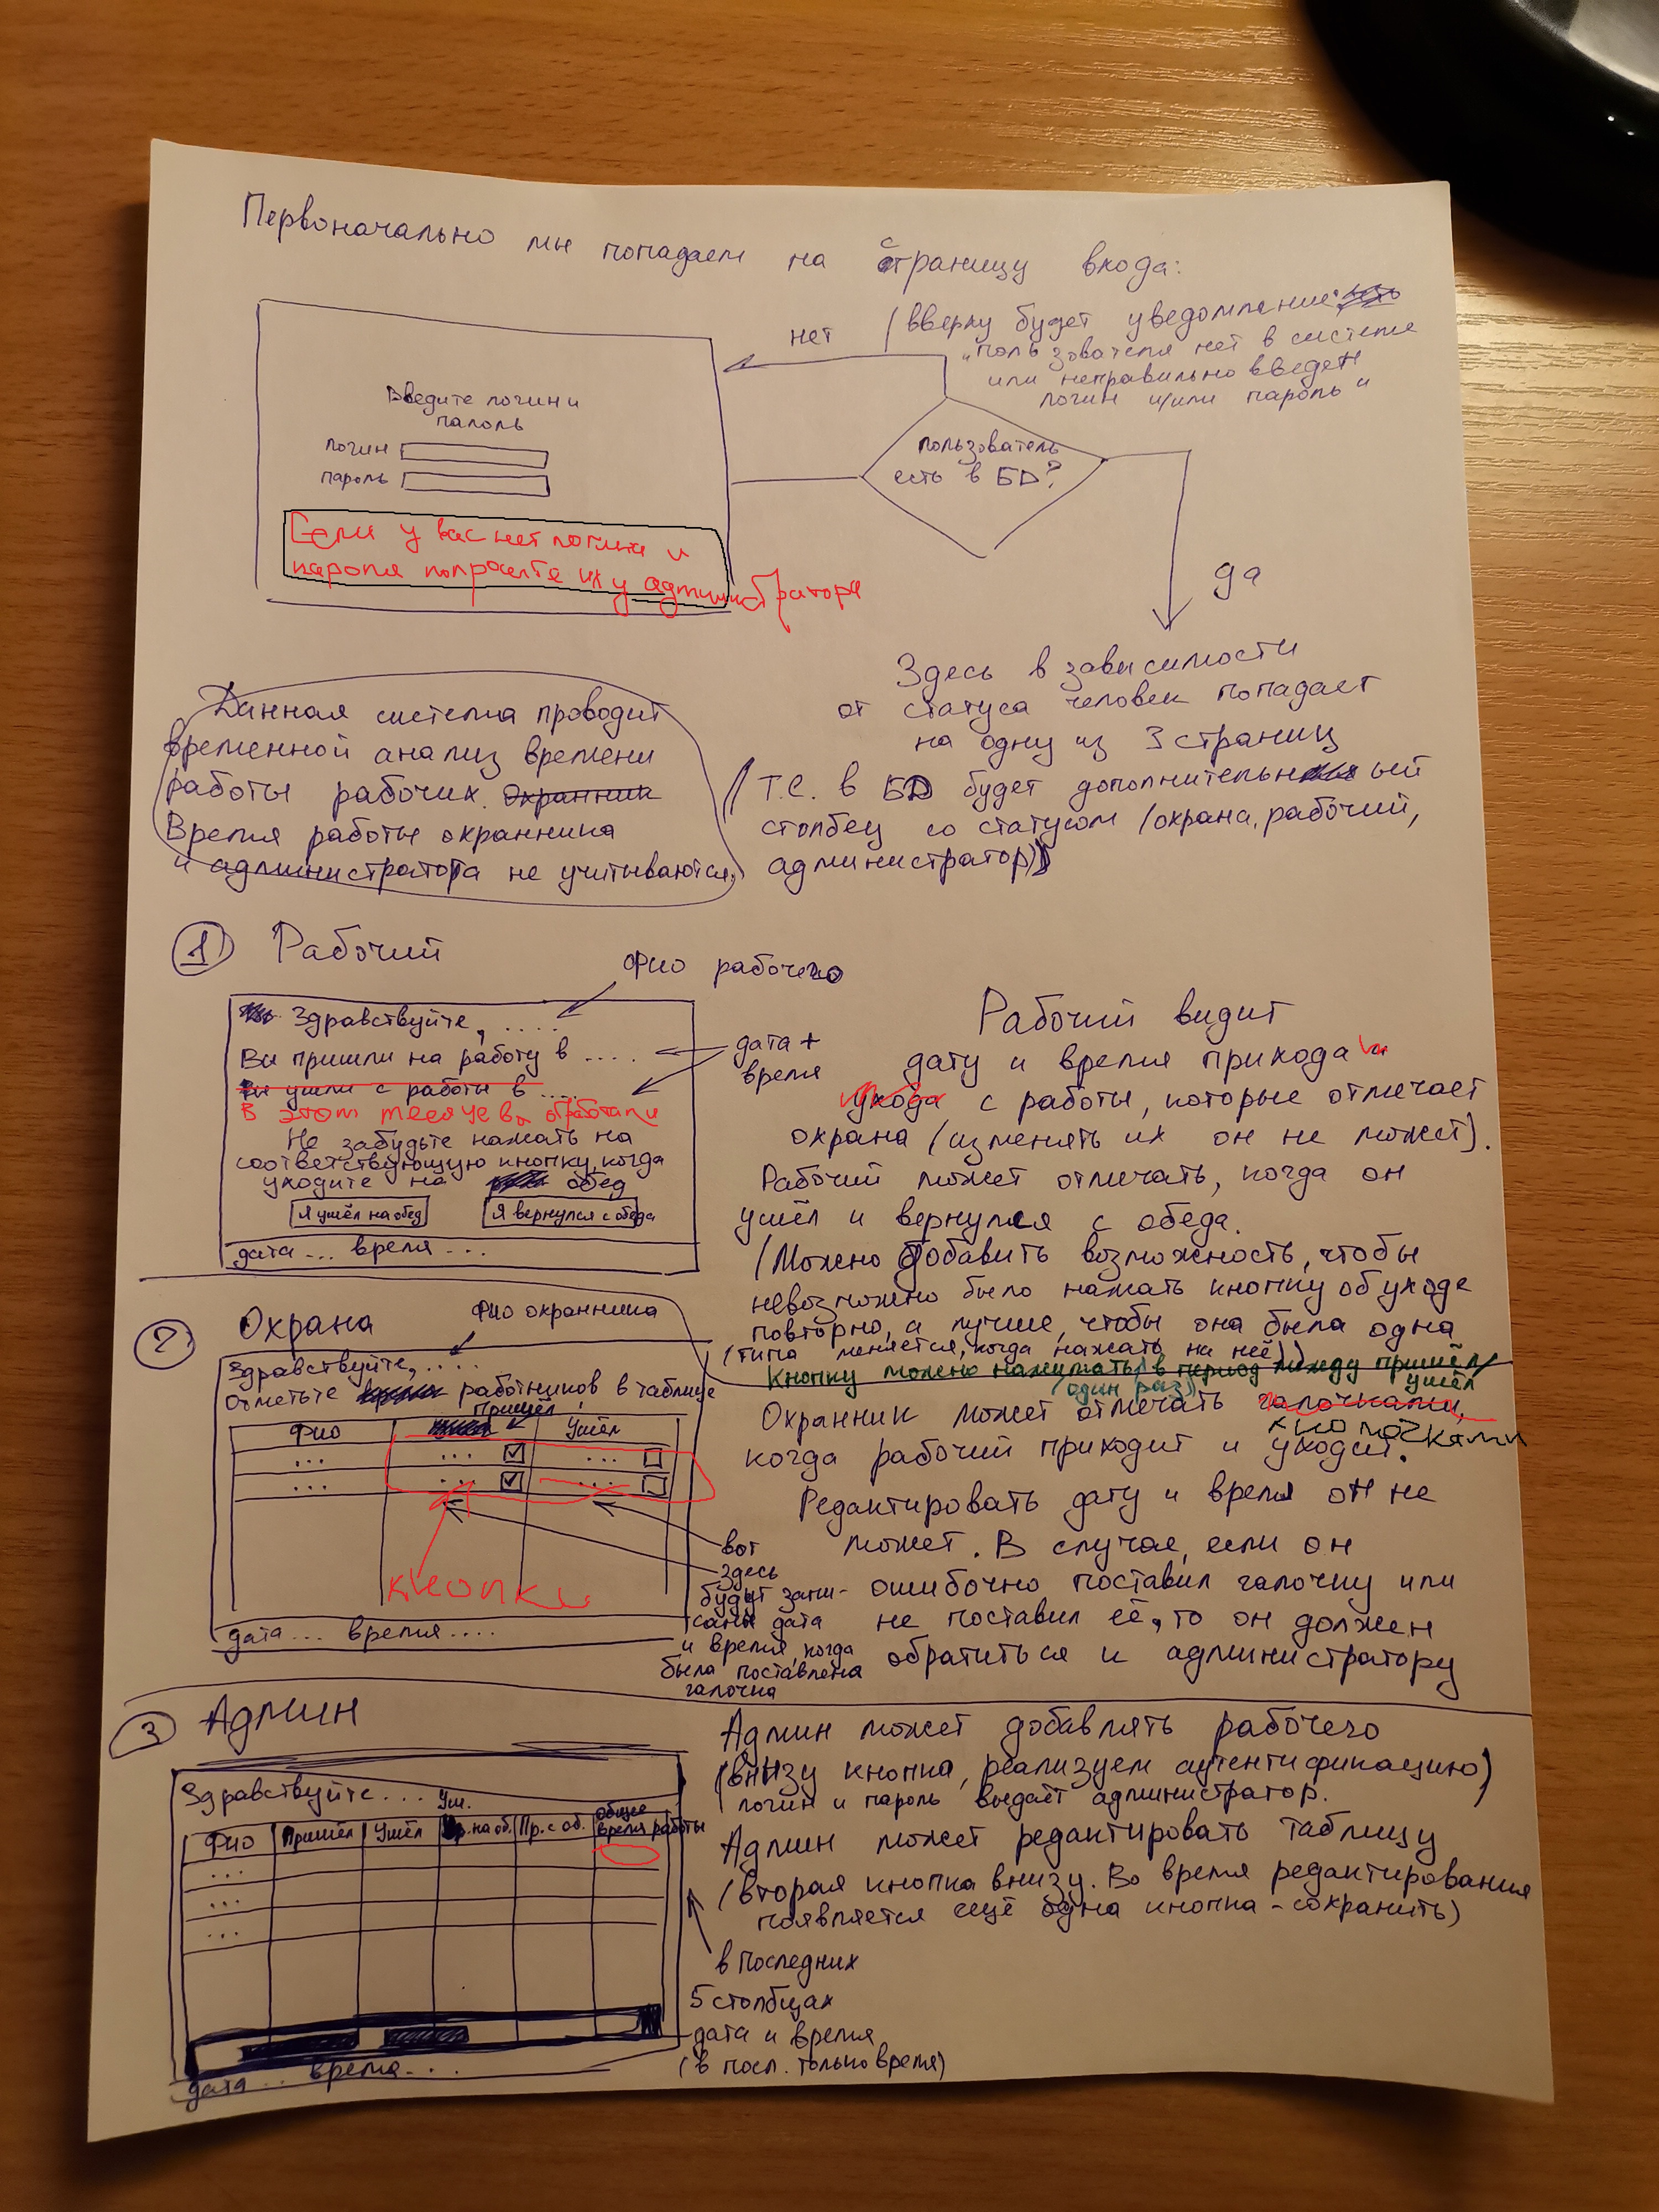 Первоначально мы попадаем на страницу входа:
нет
(вверху будет уведомление:
"пользователя нет в системе
или неправильно введен
логин и/или пароль"
Введите логин и
пароль
логин
пароль
пользователь
есть в БД?
Если у вас нет логина и
пароля попросите их у администратора
да
Здесь в зависимости
от статуса человек попадает
на одну из 3 страниц
(Т.е. в БД будет дополнительный
столбец со статусом (охрана, рабочий,
администратор))
Данная система проводит
временной анализ времени
работы рабочих. Охранник
Время работы охранника
и администратора не учитываются.
1 Рабочий
ФИО рабочего
Здравствуйте, ....
Вы пришли на работу в ....
Вы ушли с работы в ....
В этом месяце вы обработали
Не забудьте нажать на
соответствующую кнопку, когда
уходите на обед
Я ушёл на обед
Я вернулся с обеда
дата... время...
дата +
время
Рабочий видит
дату и время прихода и
ухода с работы, которые отмечает
охрана (изменять их он не может).
Рабочий может отмечать, когда он
ушёл и вернулся с обеда.
(Можно добавить возможность, чтобы
невозможно было нажать кнопку об уходе
повторно, а лучше, чтобы она была одна
(типа меняется, когда нажать на неё))
Кнопку можно нажимать в период между пришёл/
ушёл
(один раз)
2 Охрана
ФИО охранника
Здравствуйте, ....
Отметьте работников в таблице
ФИО
Пришёл
Ушёл
... ... ...
... ... ...
кнопки
дата... время....
вот
здесь
будут запи-
саны дата
и время, когда
была поставлена
галочка
Охранник может отмечать галочками,
кнопочками
когда рабочий приходит и уходит.
Редактировать дату и время он не
может. В случае, если он
ошибочно поставил галочку или
не поставил её, то он должен
обратиться к администратору
3 Админ
Здравствуйте...
Уш.
ФИО Пришёл Ушёл на об. Пр. с об. Общее
время работы
...
...
...
дата... время...
в последних
5 столбцах
дата и время
(в посл. только время)
Админ может добавлять рабочего
(внизу кнопка, реализуем аутентификацию)
логин и пароль выдаёт администратор.
Админ может редактировать таблицу
(вторая кнопка внизу. Во время редактирования
появляется ещё одна кнопка - сохранить)